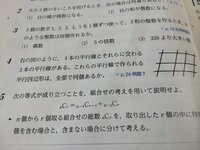 2 大小2個のさいころを投げるとき，次の場合は何通りあるか。
(1) 目の積が偶数になる。 (2) 目の和が偶数になる。
3 5個の数字1，2，3，4，5を1個ずつ使って，3桁の整数を作るとき
のような整数は何個作れるか。
(1) 偶数 (2) 5の倍数 (3) 320より大きい
4 右の図のように，4本の平行線とそれらに交わる
3本の平行線がある。これらの平行線で作られる
平行四辺形は，全部で何個あるか。
5 次の等式が成り立つことを，組合せの考えを用いて説明せよ。
ₙCᵣ = ₙ₋₁Cᵣ₋₁ + ₙ₋₁Cᵣ
n個からr個取り出す組合せの総数 ₙCᵣ を，取り出したr個の中に特定
個を含む場合と，含まない場合に分けて考える。